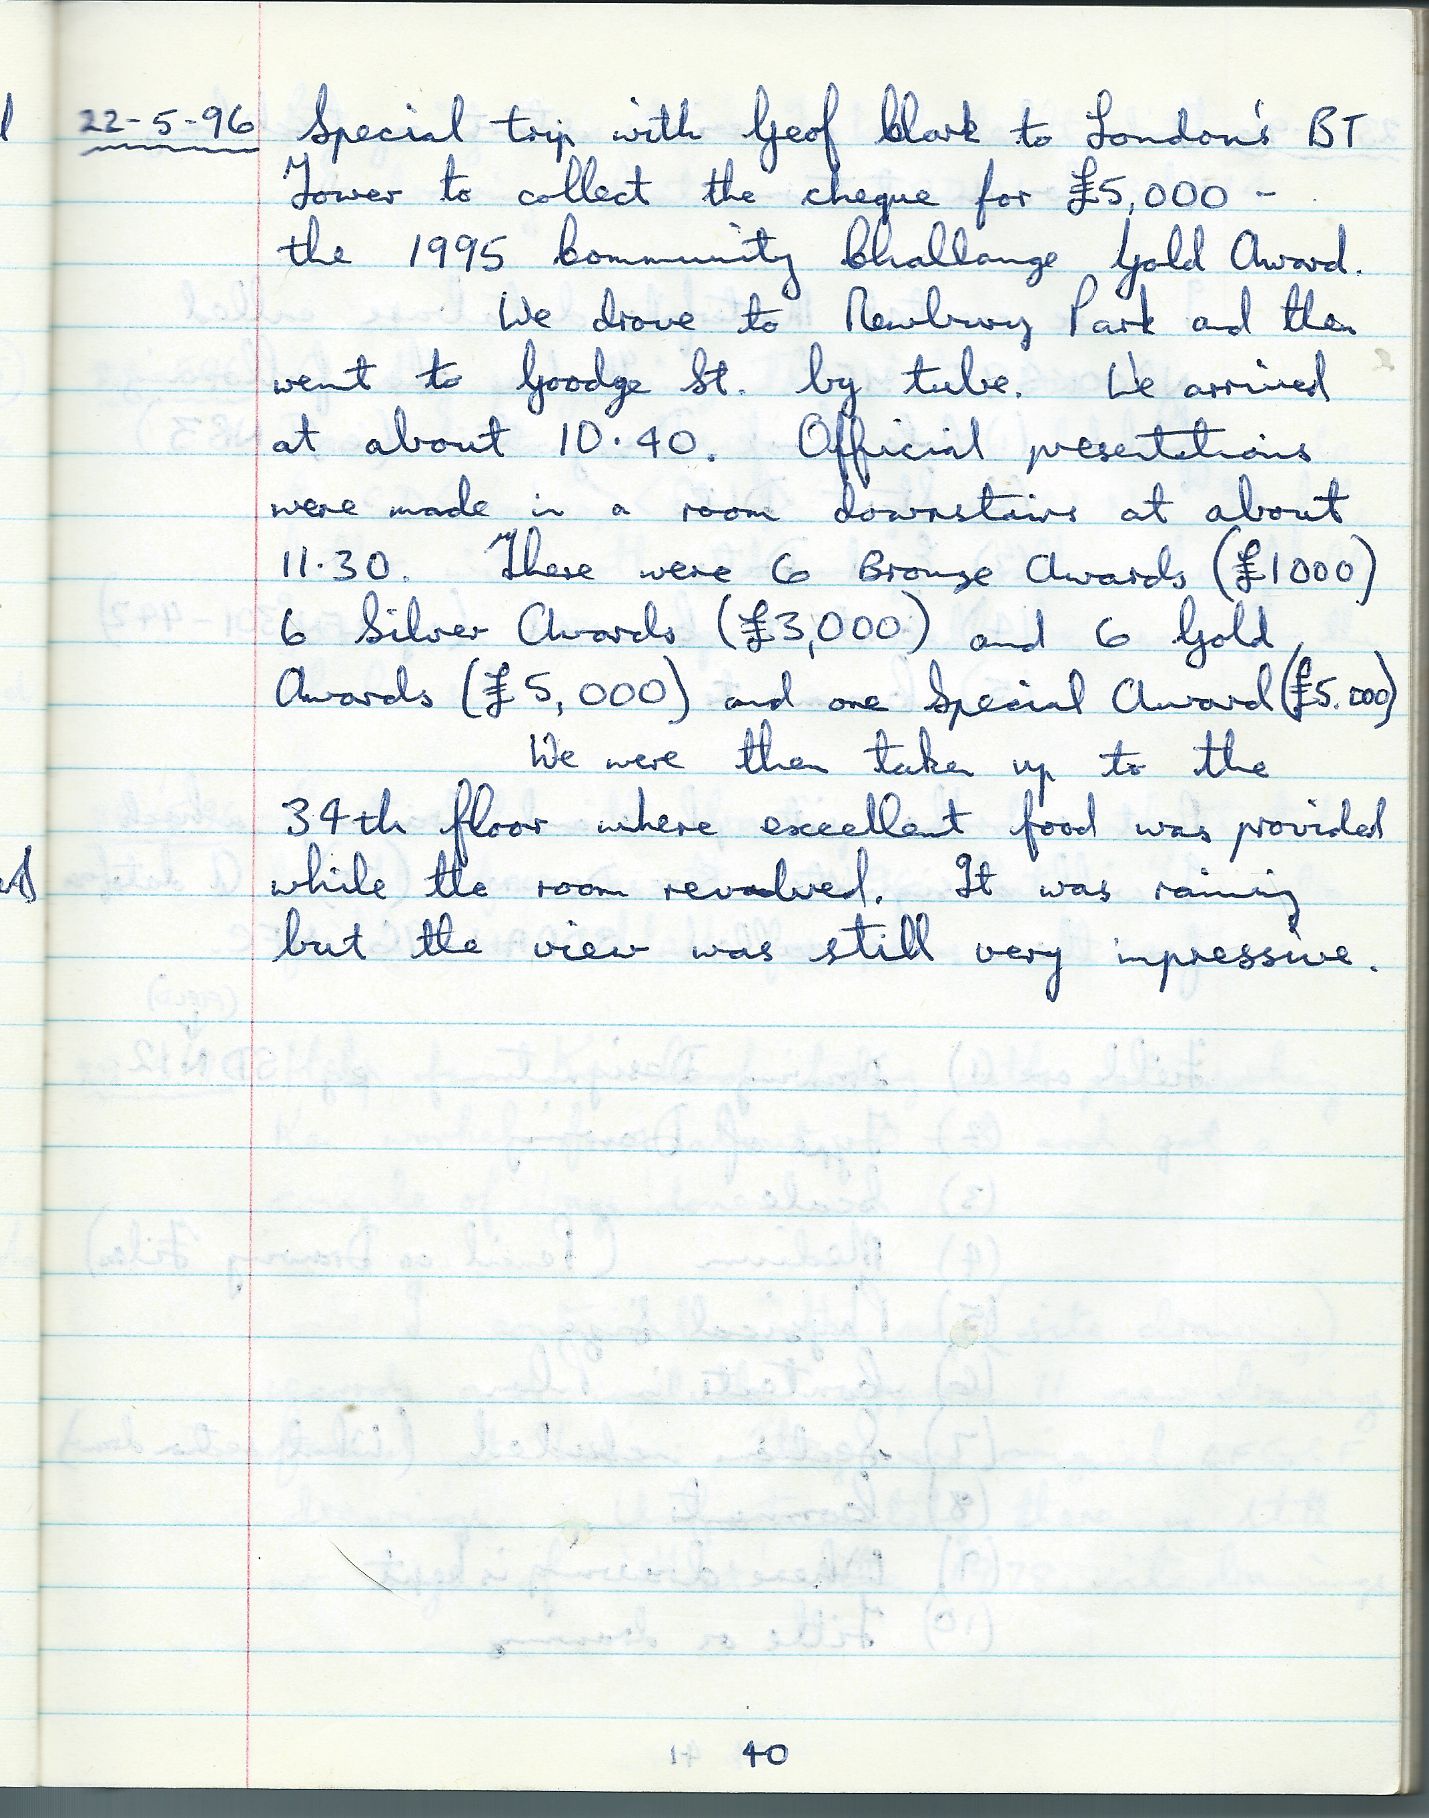 22-5-96 Special trip with Geof Clark to London's BT
Tower to collect the cheque for £5,000 -
the 1995 Community Challange Gold Award.
We drove to Newbury Park and then
went to Goodge St. by tube. We arrived
at about 10.40. Official presentations
were made in a room downstairs at about
11.30. There were 6 Bronze Awards (£1000)
6 Silver Awards (£3,000) and 6 Gold
Awards (£5,000) and one Special Award (£5.000)
We were then taken up to the
34th floor where excellent food was provided
while the room revolved. It was raining
but the view was still very impressive.
40